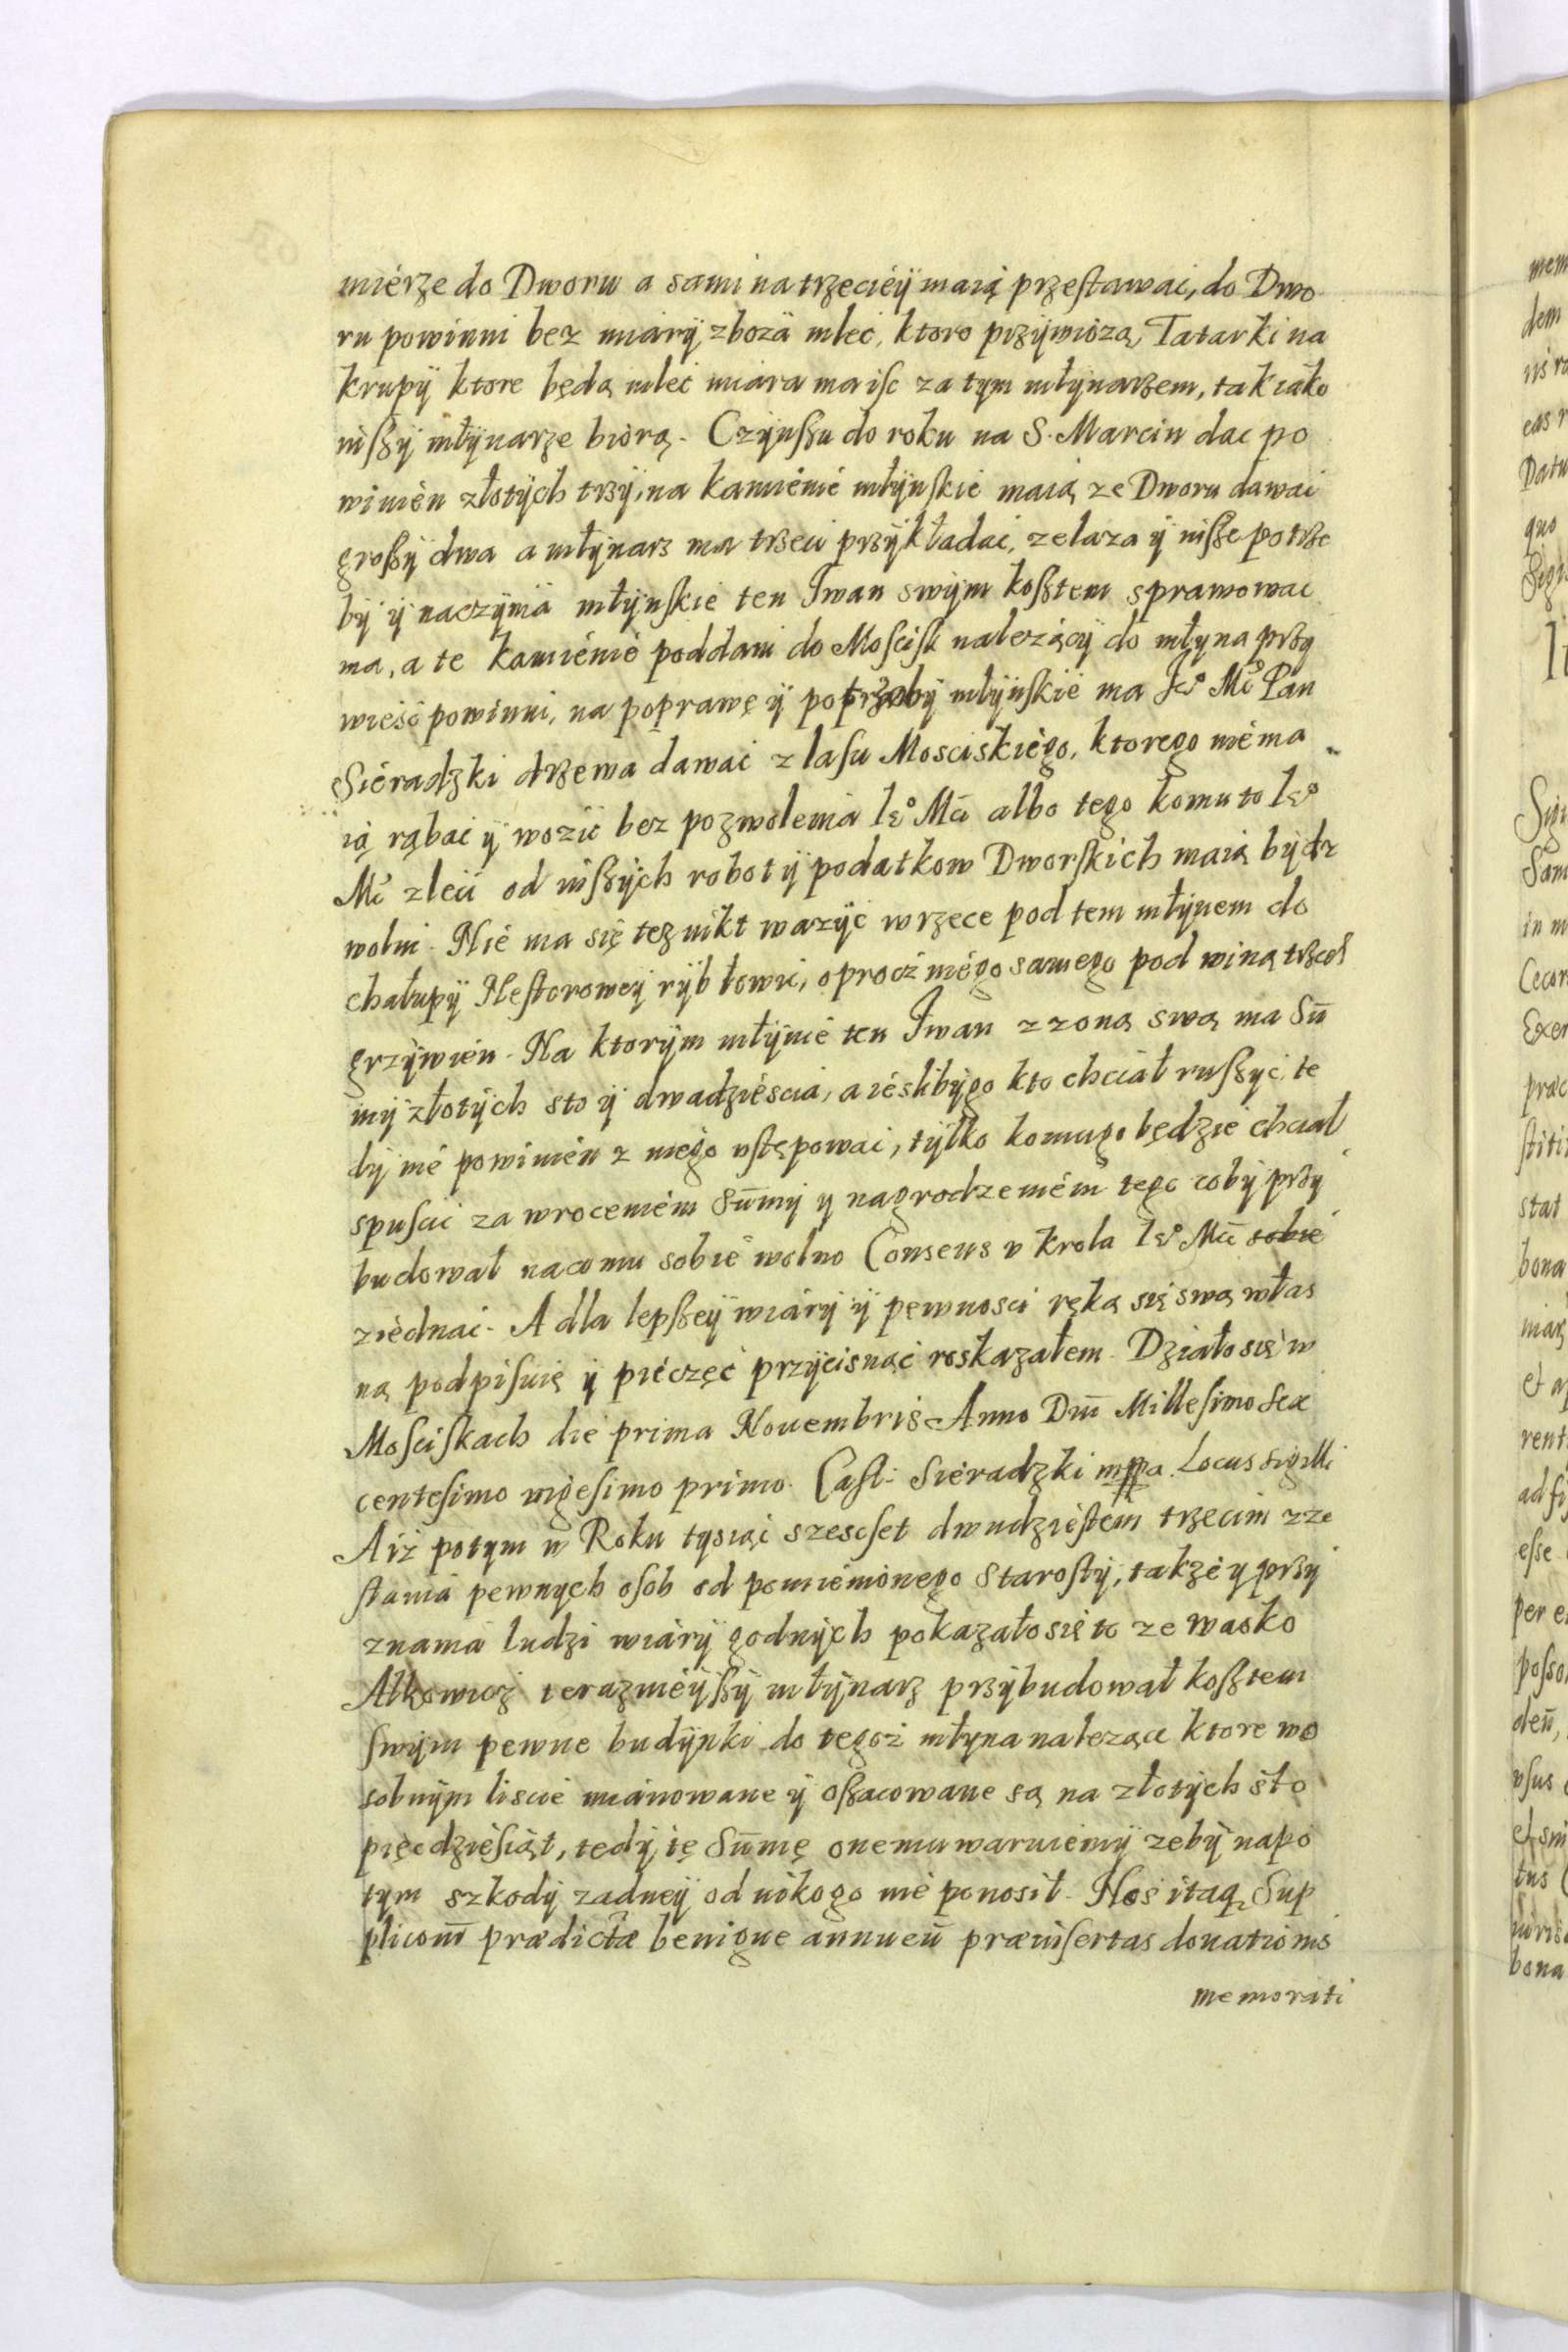 miérze do Dworu a sami na trzeciéÿ maią przestawać, do Dwo
ru powinni bez miarÿ zboża mleć, ktoro przÿwiózą, Tatarki na
krupÿ ktore będą mleć miara ma iść za tym młÿnarzem, tak iako
inszÿ młÿnarze biorą. Czÿnszu do roku na S. Marcin dac po
winién złotÿch trzÿ, na kamiénie młÿnskie maią ze Dworu dawać
groszÿ dwa a młÿnarz ma trzeci przÿkładać, zelaza ÿ insze potrze
bÿ ÿ naczÿnia młÿnskie ten Iwan swÿm kosztem sprawowac
ma, a te kamiénié poddani do Mościsk nalezącÿ do młyna przy
wieść powinni, na poprawę ÿ potrzebÿ młÿnskie ma Ieo Mć Pan
Siéradzki drzewa dawać z lasu Mosciskiégo, ktorego niéma
ią rąbać ÿ wozić bez pozwolenia Ieo Mci albo tego komu to Ieo
Mć zleci od inszÿch robot ÿ podatkow Dworskich maią bÿdz
wolni. Nié ma się tez nikt wazÿć w rzece pod tem młÿnem do
chałupÿ Nestorowéy rÿb łowić, oprocz niégo samego pod winą trzech
grzÿwién. Na ktorÿm młÿnié ten Iwan z zoną swą ma Sū
mÿ złotÿch sto ÿ dwadziéscia, a iéslibÿ go kto chciał ruszÿć, te
dÿ nié powinién z niégo vstępować, tÿlko komu go będzie chciał
spuscić za wroceniém Sūmÿ y nagrodzeniém tego cobÿ przÿ
budował na co mu sobié wolno Consens v Krola Ieo Mci sobié
ziédnać. A dla lepszeÿ wiárÿ ÿ pewnosci ręką się swą włas
ną podpisuię ÿ piéczęć przÿcisnąć roskazałem. Działo się w
Mosciskach die prima Nouembris Anno Dni Millesimo Sex
centesimo vigesimo primo. Cast: Siéradzki mppa. Locus sigilli
A iż potym w Roku tysiąc szescset dwudziéstem trzecim zze
stania pewnych osob od pomiéniónego Starostÿ, takzé y przÿ
znania ludzi wiárÿ godnÿch pokazało się to ze Wasko
terazniéÿszÿ młÿnarz przÿbudował kosztem
swÿm pewne budÿnki do tegoż młyna nalezące ktore w o
sobnÿm liscié miánowane ÿ oszacowane są na złotÿch sto
pięcdziésiąt, tedÿ tę Sūmę onemu waruiémÿ zebÿ napo
tym szkodÿ zadneÿ od nikogo nié ponosił. Nos itaq Sup
plicōni prædictæ benigne annuen̄ præinsertas donationis
memorati